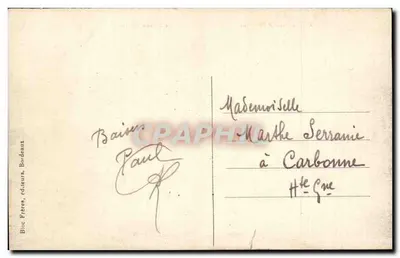 Mademoiselle
Marthe Serranie
à Carbonne
Hte Gne
Baisers
Paul
Bloc Frères, éditeurs, Bordeaux